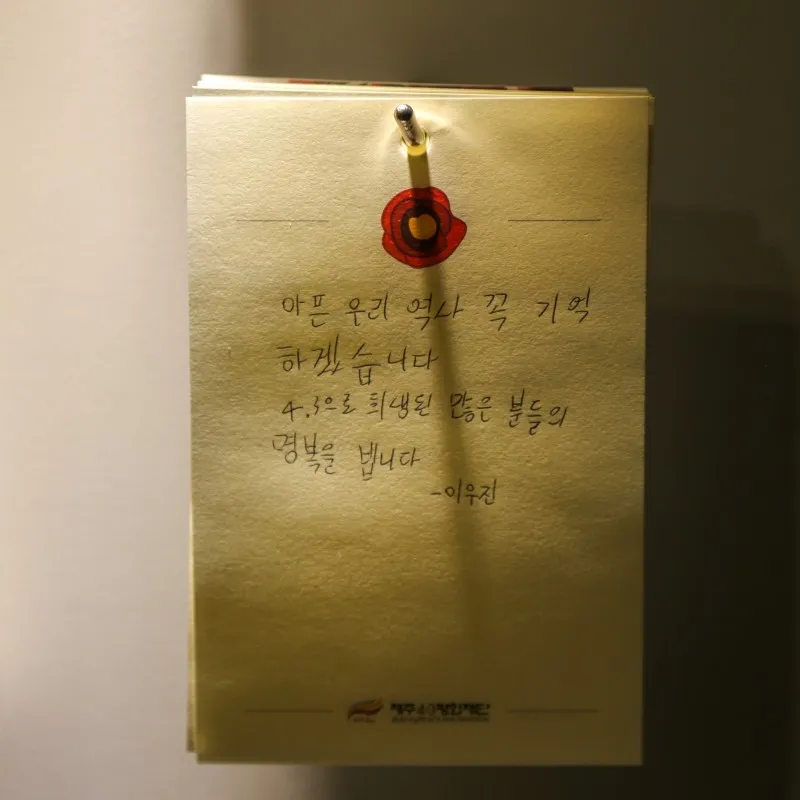 아픈 우리 역사 꼭 기억
하겠습니다
4.3으로 희생된 많은 분들의
명복을 빕니다
-이우진
제주4·3평화재단